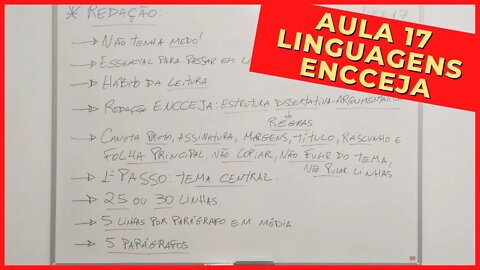 * REDAÇÃO:
→ NÃO TENHA MEDO!
→ ESSENCIAL PARA PASSAR EM
→ HÁBITO DA LEITURA
→ REDAÇÃO ENCCEJA: ESTRUTURA DISSERTATIVA-ARGUMENTATIVA
REGRAS
→ CANETA PRETA, ASSINATURA, MARGENS, TÍTULO, RASCUNHO E
FOLHA PRINCIPAL, NÃO COPIAR, NÃO FUGIR DO TEMA,
NÃO PULAR LINHAS.
→ 1º PASSO: TEMA CENTRAL.
→ 25 OU 30 LINHAS.
→ 5 LINHAS POR PARÁGRAFO EM MÉDIA
→ 5 PARÁGRAFOS
AULA 17
LINGUAGENS
ENCCEJA